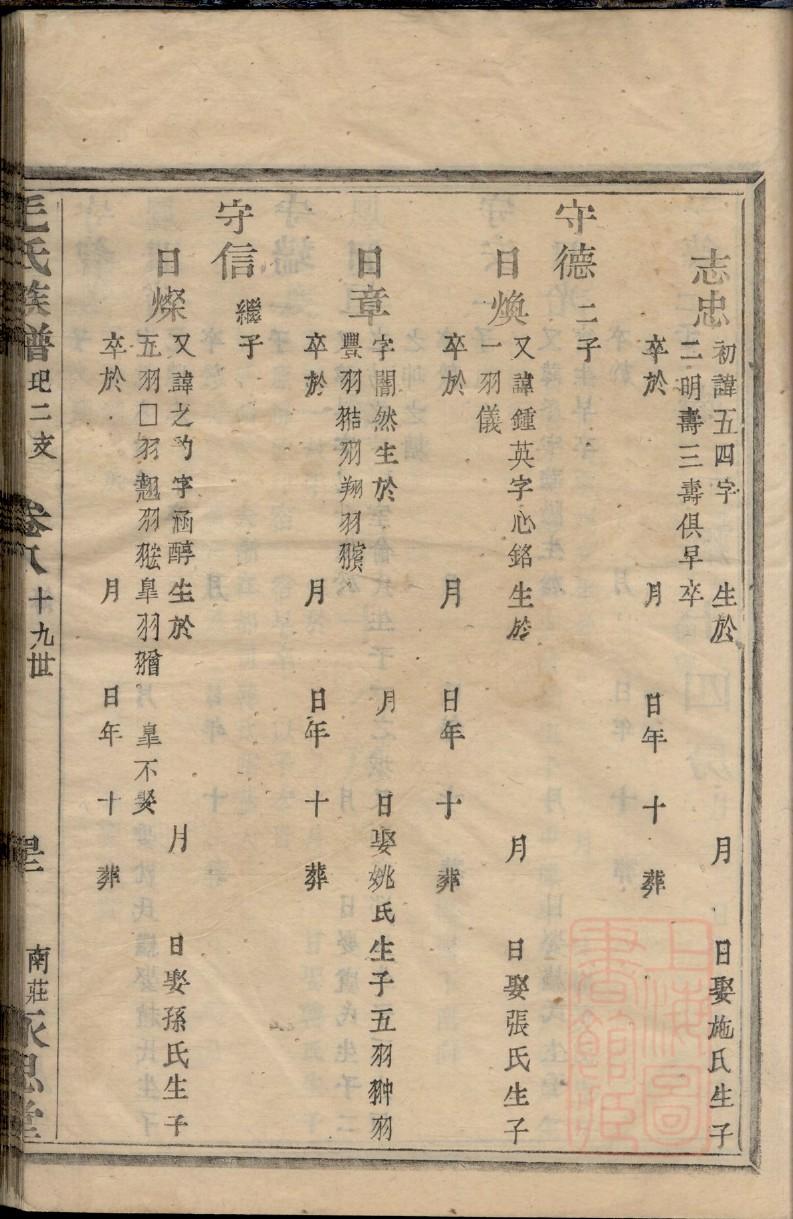 志忠
初諱五四字 生於 月 日娶施氏生子
二明壽三壽俱早卒
卒於 月 日年 十 葬
守德 二子
日煥
又諱鍾英字心銘 生於 月 日娶張氏生子
一羽儀
卒於 月 日年 十 葬
日章
字闇然生於 月 日娶姚氏生子五羽翀羽
豐羽 羽翔羽
卒於 月 日年 十 葬
守信 繼子
日燦
又諱之 字涵醇生於 月 日娶孫氏生子
五羽□羽翹羽 皐羽 皐不娶
卒於 月 日年 十 葬
毛氏族譜 二支 卷八 十九世 南莊永思堂
上海圖書館藏